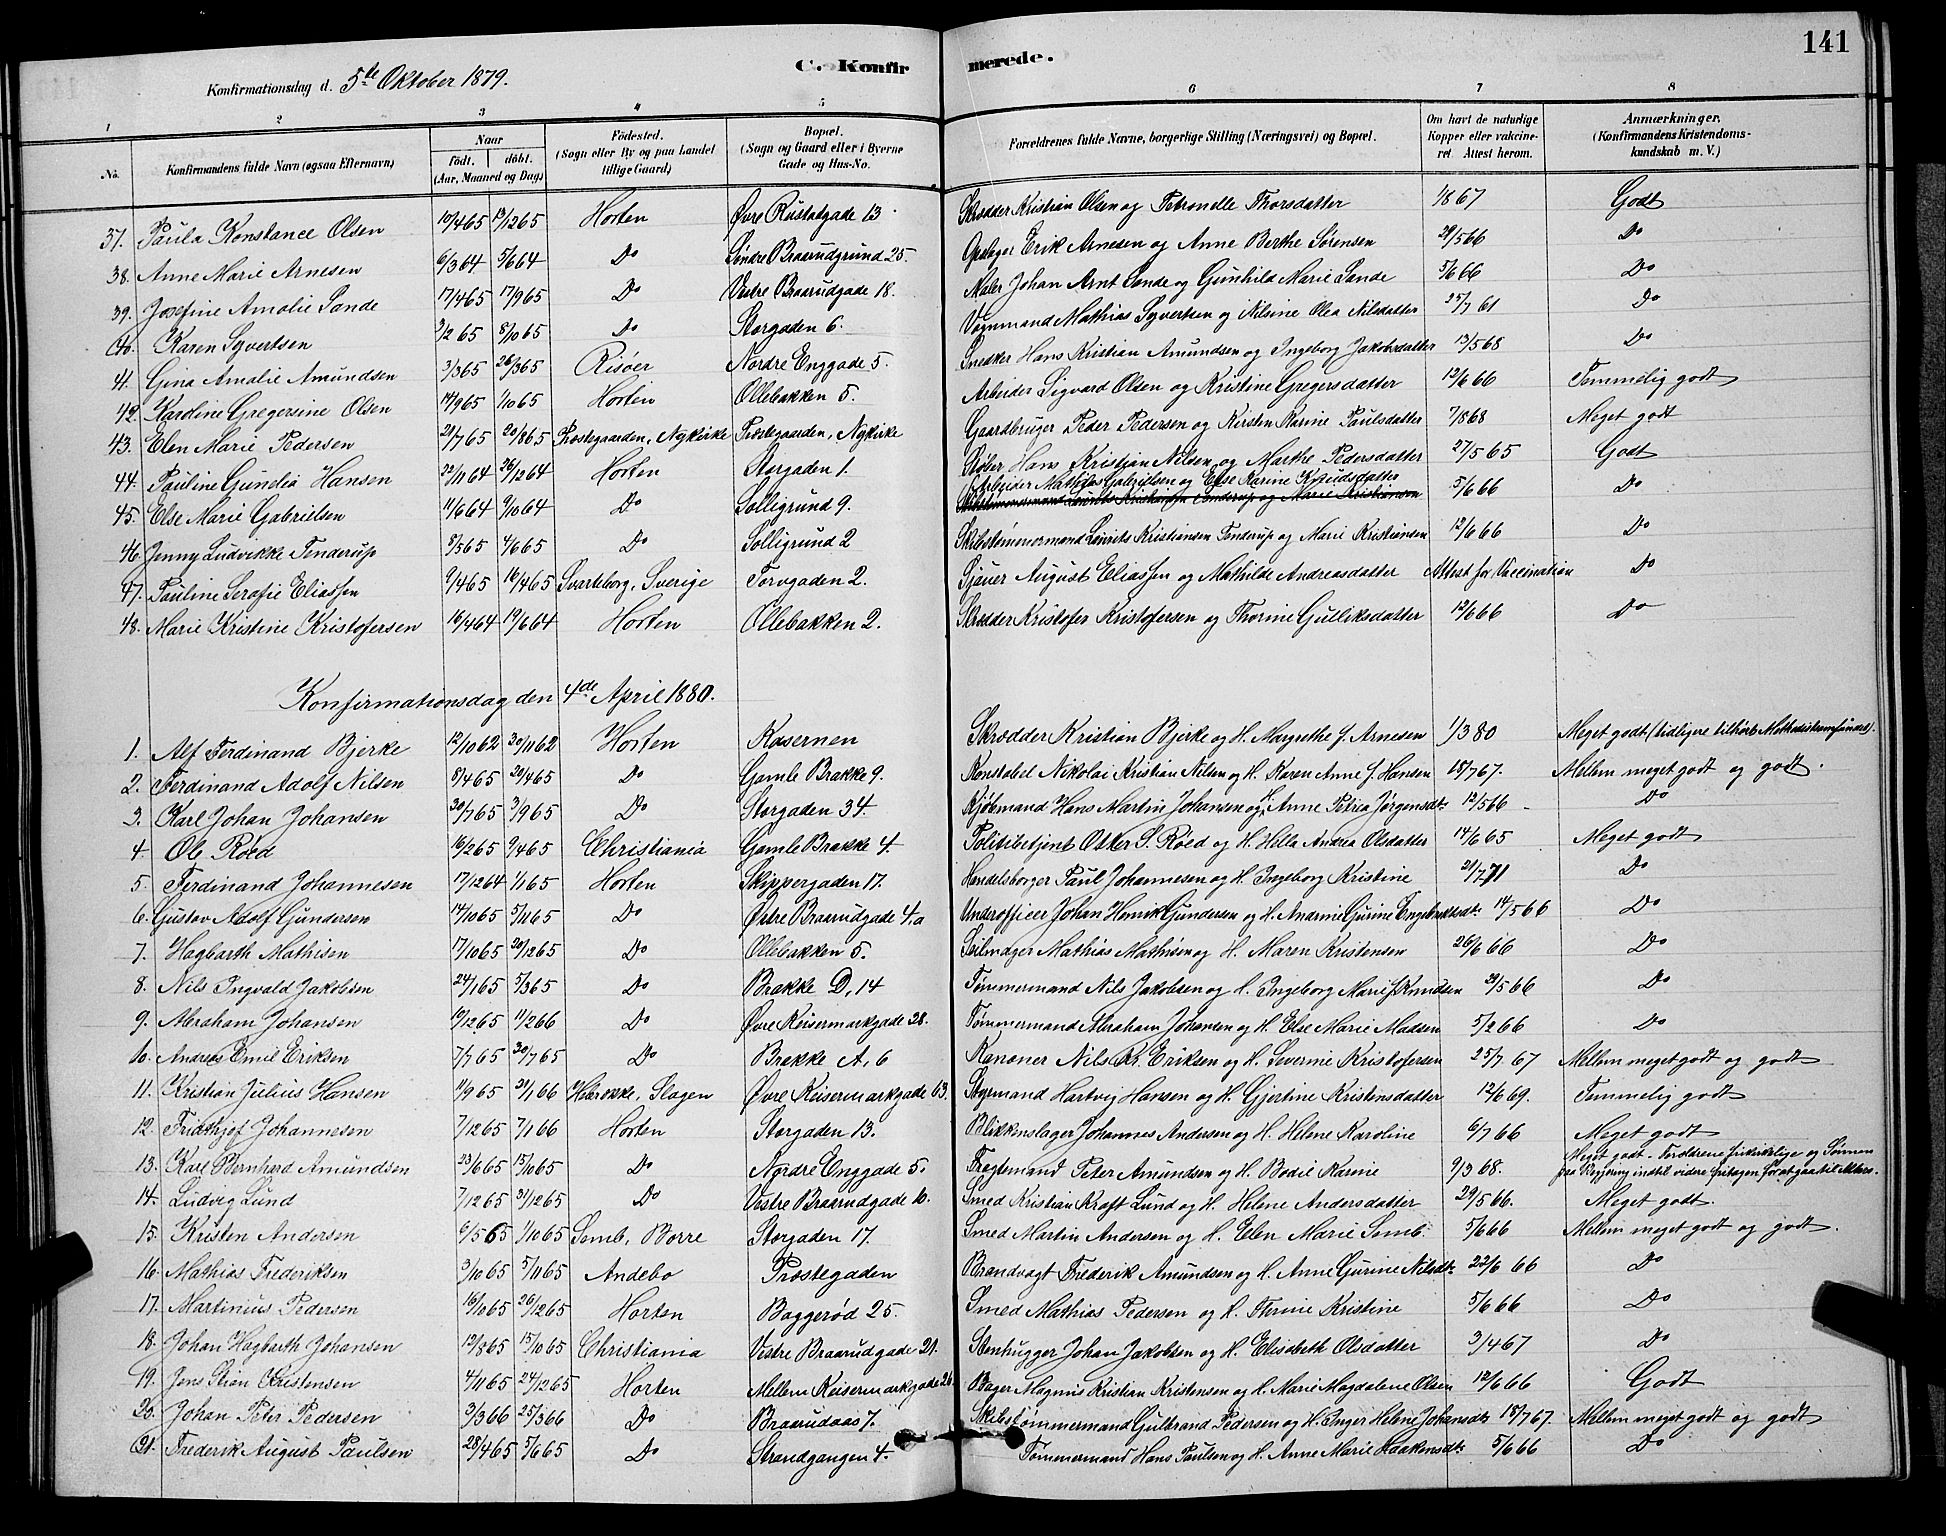 141
C. Konfirmerede.
Konfirmationsdag d. 5te Oktober 1879.
1 2 3 4 5 6 7 8
No. Konfirmandens fulde Navn (ogsaa Efternavn) Naar födt. döbt. (Aar, Maaned og Dag) Födested. (Sogn eller By og paa Landet tillige Gaard) Bopæl. (Sogn og Gaard eller i Byerne Gade og Hus-No. Forældrenes fulde Navne, borgerlige Stilling (Næringsvei) og Bopæl. Om havt de naturlige Kopper eller vakcineret. Attest herom. Anmærkninger. (Konfirmandens Kristendomskundskab m. V.)
37. Paula Konstance Olsen 10/4 65 13/12 65 Horten Øvre Rustadgade 13. Skrædder Kristian Olsen og Petronelle Thorsdatter 1/8 67 Godt
38. Anne Marie Arnesen 6/3 64 5/6 64 Do Søndre Braarudgrund 25. Opsøger Erik Arnesen og Anne Berthe Sørensen 29/5 66 Do
39. Josefine Amalie Sande 17/4 65 17/9 65 Do Vestre Braarudgade 18. Maler Johan Arnt Sande og Gunhild Marie Sande 5/6 66 Do
40. Karen Syvertsen 2/2 65 8/10 65 Do Storgaden 6. Vognmand Mathias Syvertsen og Nilsine Olea Nilsdatter 25/7 61 Do
41. Gina Amalie Amundsen 3/3 65 26/3 65 Risöer Nordre Enggade 5. Snedker Hans Kristian Amundsen og Ingeborg Jakobsdatter 13/5 68 Do
42. Karoline Gregersine Olsen 14/9 65 1/10 65 Horten Ollebakken 5. Arbeider Sigvard Olsen og Kristine Gregersdatter 12/6 66 Temmelig godt
43. Elen Marie Pedersen 21/7 65 20/8 65 Præstegaarden, Nykirke Præstegaarden, Nykirke Gaardbruger Peder Pedersen og Kirsten Karine Paulsdatter 7/8 68 Meget godt
44. Pauline Gundia Hansen 22/11 64 26/12 64 Horten Storgaden 1. Støber Hans Kristian Nilsen og Marthe Pedersdatter 27/5 65 Godt
45. Else Marie Gabrielsen 11/6 64 9/10 64 Do Solligrund 9. Arbeider Mathias Gabrielsen og Else Karine Knudsdatter 5/6 66 Do
46. Jenny Ludvikke Tenderup 8/5 65 4/6 65 Do Solligrund 2 Skibstømmermand Lourits Kristiansen Tenderup og Marie Kristiansen 12/6 66 Do
47. Pauline Serafie Eliassen 9/4 65 16/4 65 Svarteborg, Sverige Torvgaden 2. Sjauer August Eliassen og Mathilde Andreasdatter Attest for Vaccination Do
48. Marie Kristine Kristofersen 16/4 64 19/6 64 Horten Ollebakken 2. Skrædder Kristofer Kristofersen og Thorine Gulliksdatter 12/6 66 Do
Konfirmationsdag den 4de April 1880.
1. Alf Ferdinand Bjerke 12/10 62 30/11 62 Horten Kasernen Skrædder Kristian Bjerke og H. Margrethe f. Arnesen 1/3 80 Meget godt (tidligere tilhørt Methodistsamfundet).
2. Ferdinand Adolf Nilsen 8/4 65 29/4 65 Do Gamle Brakke 9. Konstabel Nikolai Kristian Nilsen og H. Karen Anne f. Hansen 18/7 67. Mellem meget godt og godt.
3. Karl Johan Johansen 30/7 65 3/9 65 Do Storgaden 34. Kjöbmand Hans Martin Johansen og H. Anne Petrea Jørgensdtr. 12/5 66 Do
4. Ole Röed 16/2 65 9/4 65 Christiania Gamle Brakke 4. Politibetjent Otter S. Röed og H. Hella Andrea Olsdatter 14/6 65 Meget godt
5. Ferdinand Johannesen 17/12 64 1/1 65 Horten Skippergaden 17. Handelsborger Paul Johannesen og H. Ingeborg Kristine 21/7 71 Do
6. Gustav Adolf Gundersen 14/10 65 5/11 65 Do Østre Braarudgade 4.a Underofficer Johan Henrik Gundersen og H. Andrine Gurine Engebretsdt. 14/5 66 Do
7. Hagbarth Mathisen 17/10 65 30/12 65 Do Ollebakken 5. Seilmager Mathias Mathisen og H. Maren Kristensen 26/6 66 Do
8. Nils Ingvald Jakobsen 24/1 65 5/3 65 Do Brakke D, 14 Tømmermand Nils Jakobsen og H. Ingeborg Marie f. Knudsen 29/5 66 Do
9. Abraham Johansen 19/12 65 11/2 66 Do Øvre Keisermarkgade 28. Tømmermand Abraham Johansen og H. Else Marie Madsen 5/2 66 Do
10. Andreas Emil Eriksen 7/7 65 30/7 65 Do Brakke A, 6 Kanoner Nils Kr. Eriksen og H. Severine Kristofersen 25/7 67 Mellem meget godt og godt
11. Kristian Julius Hansen 11/9 65 21/1 66 Slagen Øvre Keisermarkgade 63. Styrmand Hartvig Hansen og H. Gjertine Kristensdatter 12/6 69. Temmelig godt
12. Fridthjof Johannesen 7/12 65 7/1 66 Horten Storgaden 13. Blikkenslager Johannes Andersen og H. Helene Karoline 6/7 66 Meget godt
13. Karl Bernhard Amundsen 23/6 65 15/10 65 Do Nordre Enggade 5. Fragtemand Peter Amundsen og H. Bodil Karine 9/3 68. Meget godt. Forældrene frikirkelige og Sønnen paa Begjæring indtil videre fritagen for at gaa til Alters.
14. Ludvig Lund 7/12 65 31/12 65 Do Vestre Braarudgade 10. Smed Kristian Kraft Lund og H. Helene Andersdatter 29/5 66. Meget godt.
15. Kristen Andersen 6/5 65 1/10 65 Semb, Borre Storgaden 17. Smed Martin Andersen og H. Elen Marie Semb. 5/6 66 Mellem meget godt og godt.
16. Mathias Frederiksen 3/10 65 5/11 65 Andebo Præstegaden Brandvagt Frederik Amundsen og H. Anne Gurine Nilsdt. 22/6 66 Do
17. Martinius Pedersen 16/10 65 26/12 65 Horten Baggerød 25. Smed Mathias Pedersen og H. Therine Kristine 5/6 66 Do
18. Johan Hagbarth Johansen 12/8 65 15/10 65 Christiania Vestre Braarudgade 21. Stenhugger Johan Jakobsen og H. Elisabeth Olsdatter 3/4 67 Do
19. Jens Kristensen 4/11 65 24/12 65 Horten Mellem Keisermarkgade 26 Bager Magnus Kristian Kristensen og H. Marie Magdalene Olsen 12/6 66 Godt
20. Johan Peter Pedersen 3/3 66 25/3 66 Do Braarudaas 7. Skibstømmermand Gulbrand Pedersen og H. Inger Helene Johansdt. 18/7 67. Mellem meget godt og godt
21. Frederik August Paulsen 28/4 65 5/6 65 Do Strandgangen 4. Tømmermand Hans Paulsen og H. Anne Marie Haakensdt. 5/6 66 Do